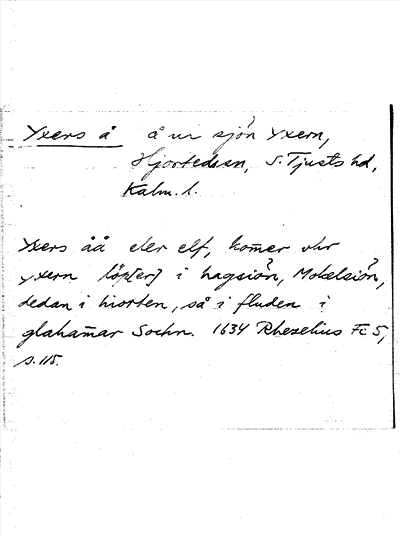 Yxers å å ur sjön Yxern,
Hjorteds sn, S. Tjusts hd,
Kalm. l.
Yxers åå eler elf, kom̄er vhr
yxern löp[er] i hagsiön, Mokelsiön,
dedan i hiorten, så i fluden i
glaham̄ar Sochn. 1634 Rhezelius Fc 5,
s. 115.